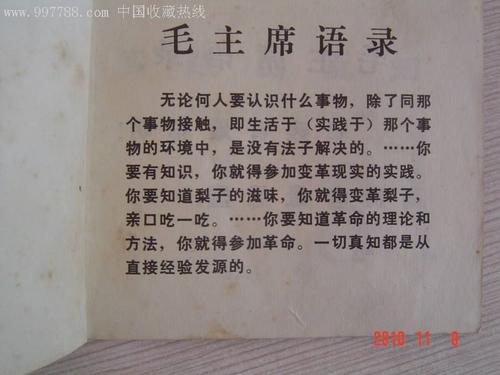 www.997788.com 中国收藏热线
毛主席语录
无论何人要认识什么事物，除了同那
个事物接触，即生活于（实践于）那个事
物的环境中，是没有法子解决的。……你
要有知识，你就得参加变革现实的实践。
你要知道梨子的滋味，你就得变革梨子，
亲口吃一吃。……你要知道革命的理论和
方法，你就得参加革命。一切真知都是从
直接经验发源的。
2010 11